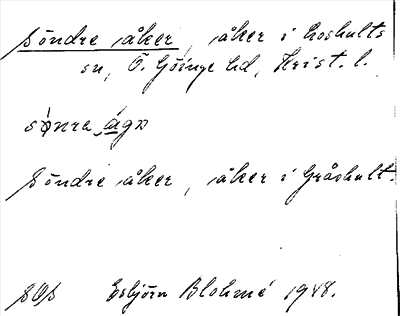 Söndre åker, åker i Loshults
sn, Ö. Göinge hd, Krist. l.
sønra ågɒ
Söndre åker, åker i Gråshult.
SOS Esbjörn Blohmé 1948.